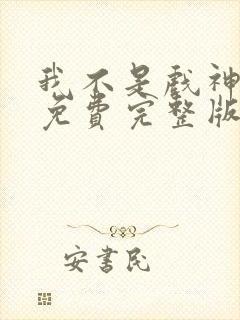 我不是戲神
免費完整版
安書民